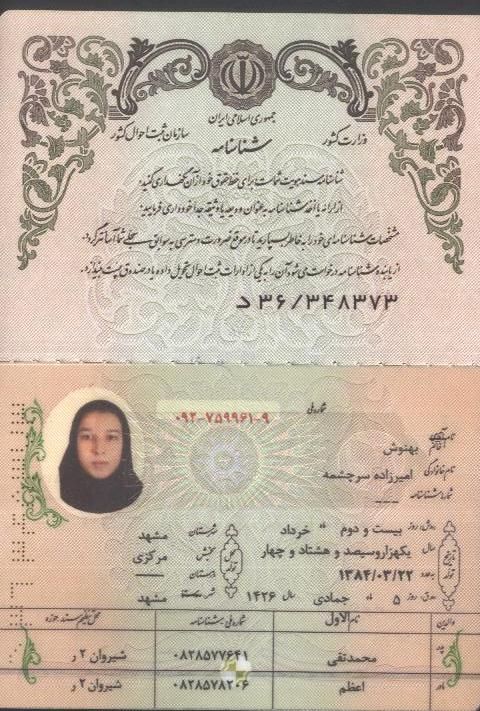 جمهوری اسلامی ایران
وزارت کشور
سازمان ثبت احوال کشور
شناسنامه
شناسنامه سند هویت شماست برای حفظ حقوق خود از آن نگهداری کنید.
از ارائه یا اخذ شناسنامه به عنوان ودیعه یا وثیقه جداً خودداری فرمایید.
مشخصات شناسنامه‌ای خود را به خاطر بسپارید تا در موقع ضرورت دسترسی به سوابق سجلی شما آسانتر گردد.
از یابنده شناسنامه درخواست می شود آن را به یکی از ادارات ثبت احوال تحویل داده یا در صندوق پست بیندازد.
د ۳۶/۳۴۸۳۷۳
شماره ملی ۰۹۲-۷۵۹۹۶۱-۹
نام بهنوش
نام خانوادگی امیرزاده سرچشمه
شماره شناسنامه ——
روز بیست و دوم ماه خرداد
سال یکهزاروسیصد و هشتاد و چهار
۱۳۸۴/۰۳/۲۲
روز ۵ ماه جمادی الاول سال ۱۴۲۶
تاریخ تولد
محل تولد
شهرستان مشهد
بخش مرکزی
دهستان ——
شهر مشهد
والدین نام شماره ملی - شناسنامه محل تنظیم سند حوزه
پدر محمدتقی ۰۸۲۸۵۷۷۶۴۱ شیروان ۲ ر
مادر اعظم ۰۸۲۸۵۷۸۲۰۶ شیروان ۲ ر